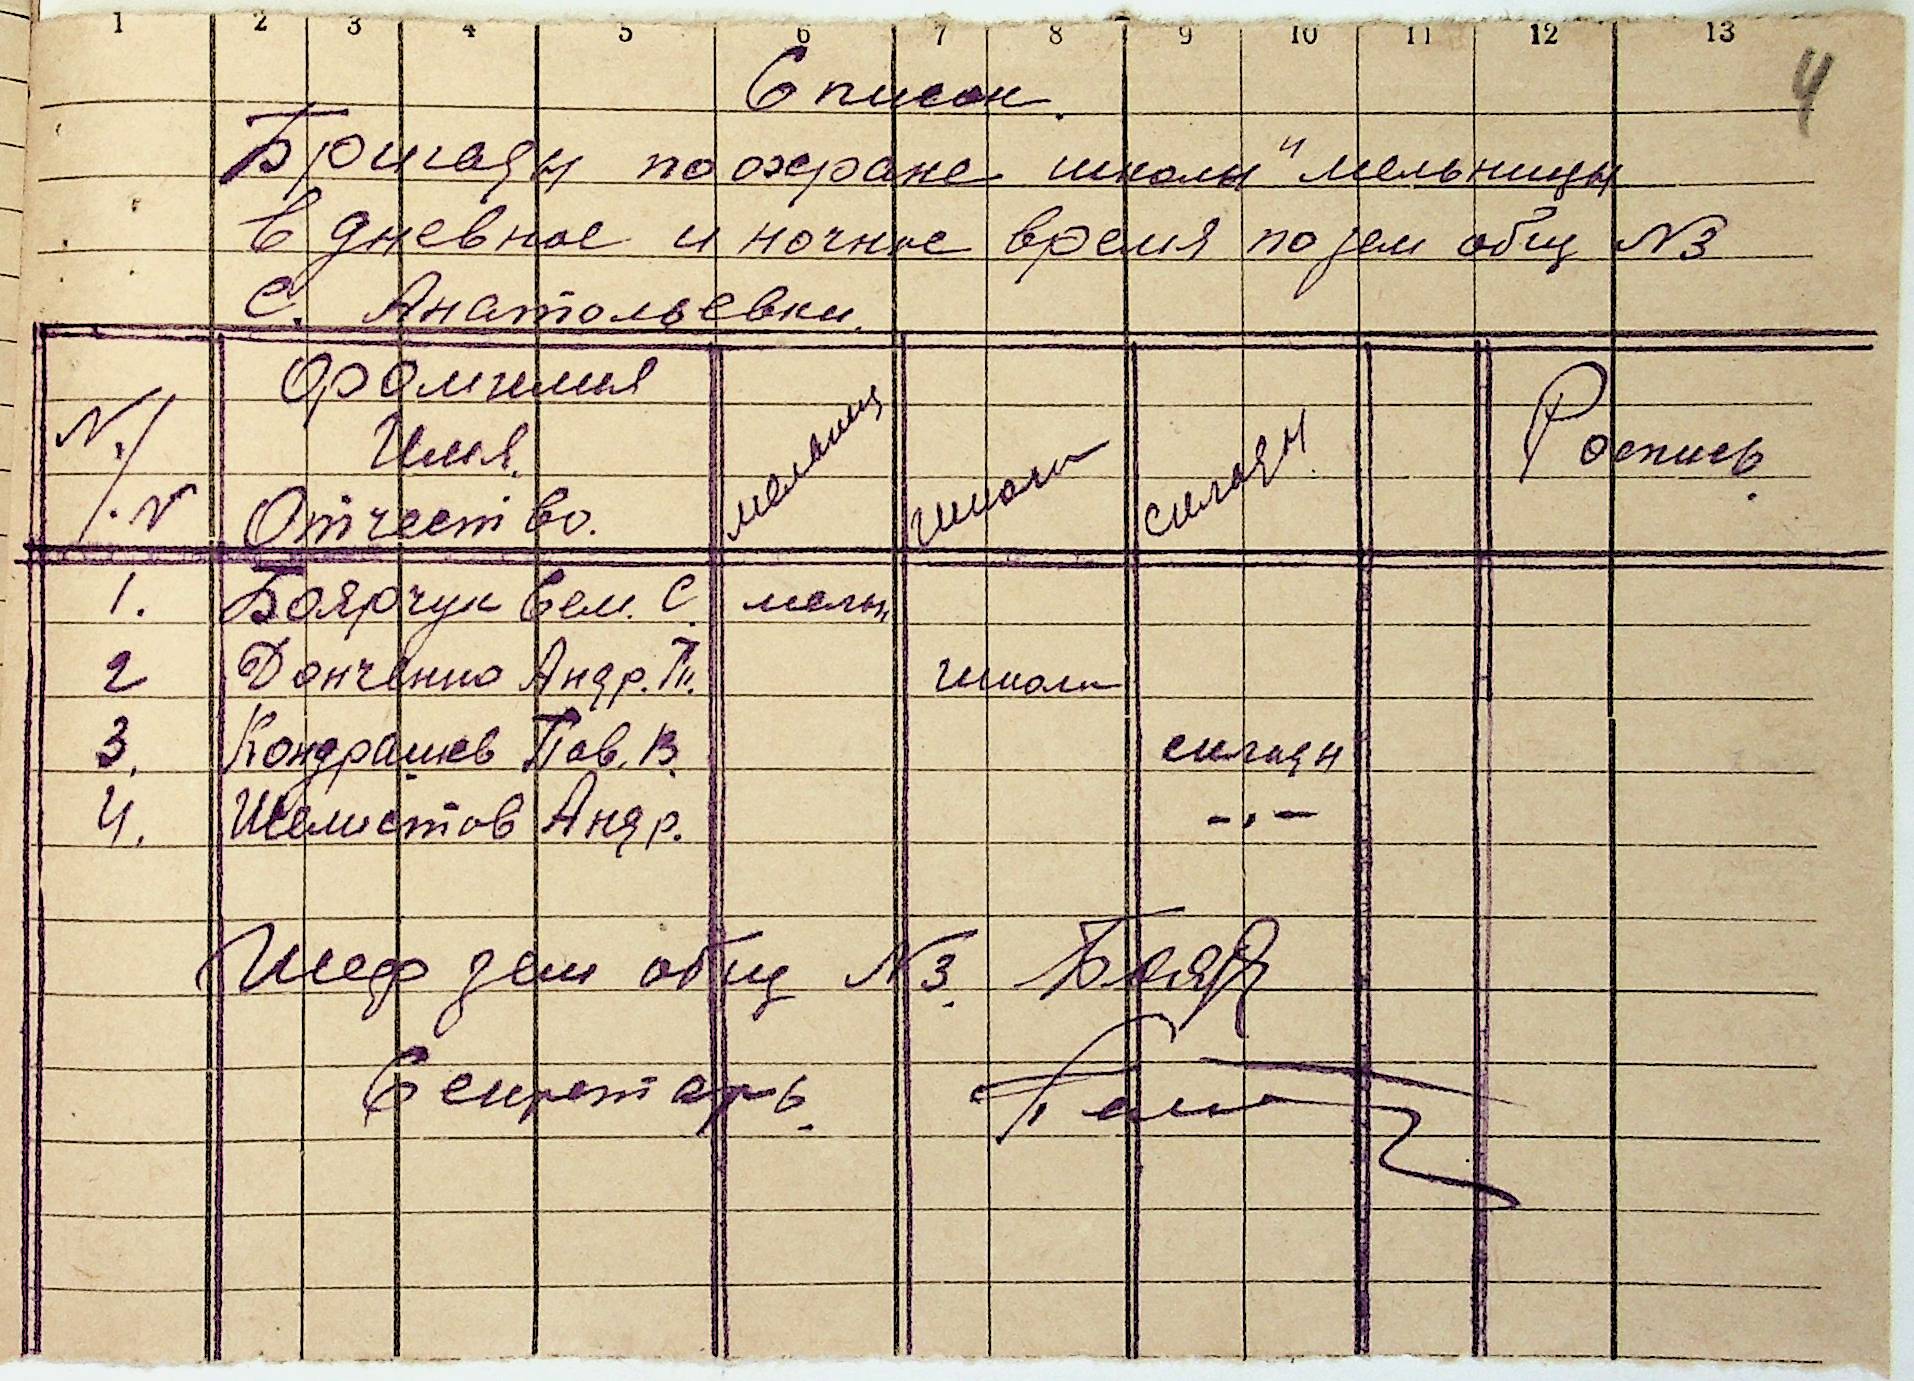 1 2 3 4 5 6 7 8 9 10 11 12 13
4
Список.
Бригады по охране школы и мельницы
в дневное и ночное время по зем общ N3
с. Анатольевки.
N./.N Фамилия Имя. Отчество. мельниц школы склады Роспись.
1. Боярчук Сем. С. мельн
2 Донченко Андр. П. школы
3. Кондрашев Пав. В. склады
4. Шелистов Андр. -.-
Шеф зем общ N3. Бояр
Секретарь.